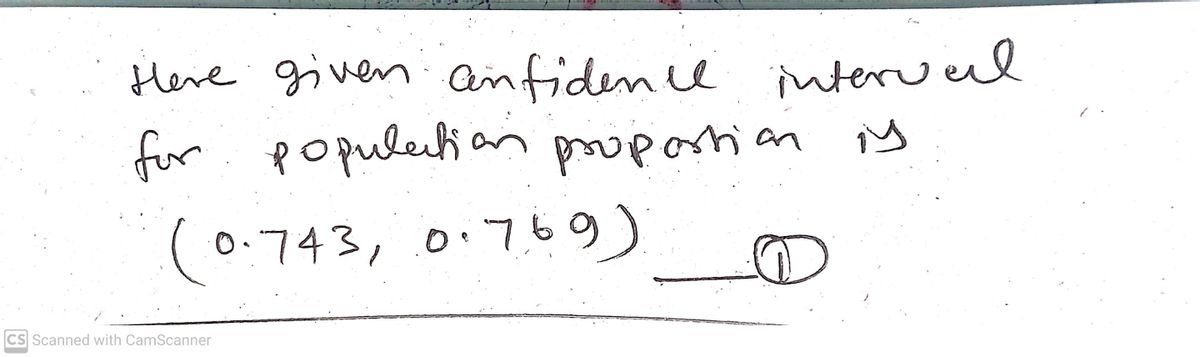 Here given confidence interval
for population proportion is
(0.743, 0.769) ①
CS Scanned with CamScanner